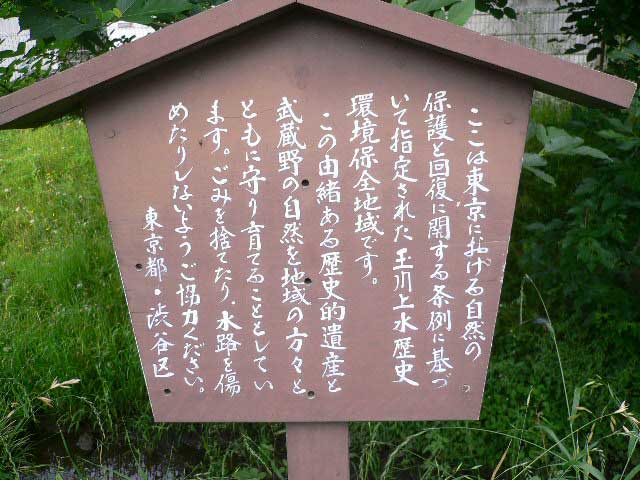 ここは東京における自然の
保護と回復に関する条例に基づ
いて指定された玉川上水歴史
環境保全地域です。
この由緒ある歴史的遺産と
武蔵野の自然を地域の方々と
ともに守り育てることとしてい
ます。ごみを捨てたり、水路を傷
めたりしないようご協力ください。
東京都・渋谷区